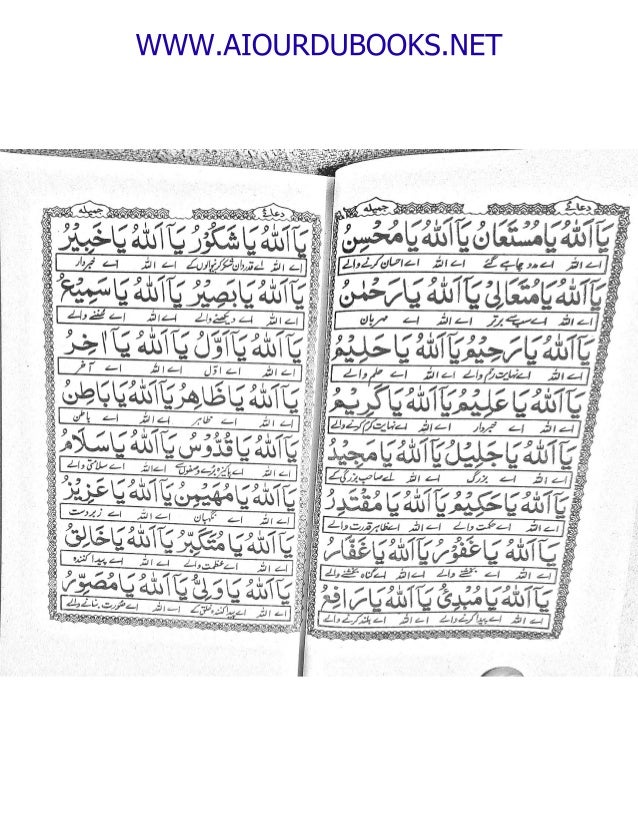 WWW.AIOURDUBOOKS.NET
دعائے جمیلہ
یَآ اَللهُ یَا مُسْتَعَانُ یَآ اَللهُ یَا مُحْسِنُ
اے اللہ اے مدد چاہے گئے اے اللہ اے احسان کرنے والے
یَآ اَللهُ یَا مُتَعَالِیْ یَآ اَللهُ یَا رَحْمٰنُ
اے اللہ اے سب سے برتر اے اللہ اے مہربان
یَآ اَللهُ یَا رَحِیْمُ یَآ اَللهُ یَا حَلِیْمُ
اے اللہ اے نہایت رحم والے اے اللہ اے حلم والے
یَآ اَللهُ یَا عَلِیْمُ یَآ اَللهُ یَا کَرِیْمُ
اے اللہ اے خبردار اے اللہ اے نہایت کرم کرنے والے
یَآ اَللهُ یَا جَلِیْلُ یَآ اَللهُ یَا مَجِیْدُ
اے اللہ اے بزرگ اے اللہ اے صاحب بزرگی کے
یَآ اَللهُ یَا حَکِیْمُ یَآ اَللهُ یَا مُقْتَدِرُ
اے اللہ اے حکمت والے اے اللہ اے ظاہر قدرت والے
یَآ اَللهُ یَا غَفُوْرُ یَآ اَللهُ یَا غَفَّارُ
اے اللہ اے بخشنے والے اے اللہ اے گناہ بخشنے والے
یَآ اَللهُ یَا مُبْدِئُ یَآ اَللهُ یَا رَافِعُ
اے اللہ اے پیدا کرنے والے اے اللہ اے بلند کرنے والے
دعائے جمیلہ
یَآ اَللهُ یَا شَکُوْرُ یَآ اَللهُ یَا خَبِیْرُ
اے اللہ اے قدردان شکر کرنیوالوں کے اے اللہ اے خبردار
یَآ اَللهُ یَا بَصِیْرُ یَآ اَللهُ یَا سَمِیْعُ
اے اللہ اے دیکھنے والے اے اللہ اے سننے والے
یَآ اَللهُ یَآ اَوَّلُ یَآ اَللهُ یَآ اٰخِرُ
اے اللہ اے اوّل اے اللہ اے آخر
یَآ اَللهُ یَا ظَاهِرُ یَآ اَللهُ یَا بَاطِنُ
اے اللہ اے ظاہر اے اللہ اے باطن
یَآ اَللهُ یَا قُدُّوْسُ یَآ اَللهُ یَا سَلَامُ
اے اللہ اے پاکیزہ اے اللہ اے سلامتی والے
یَآ اَللهُ یَا مُهَیْمِنُ یَآ اَللهُ یَا عَزِیْزُ
اے اللہ اے نگہبان اے اللہ اے زبردست
یَآ اَللهُ یَا مُتَکَبِّرُ یَآ اَللهُ یَا خَالِقُ
اے اللہ اے عظمت والے اے اللہ اے پیدا کنندہ
یَآ اَللهُ یَا وَلِیُّ یَآ اَللهُ یَا مُصَوِّرُ
اے اللہ اے پیدا کنندہ خلق کے اے اللہ اے صورت بنانے والے